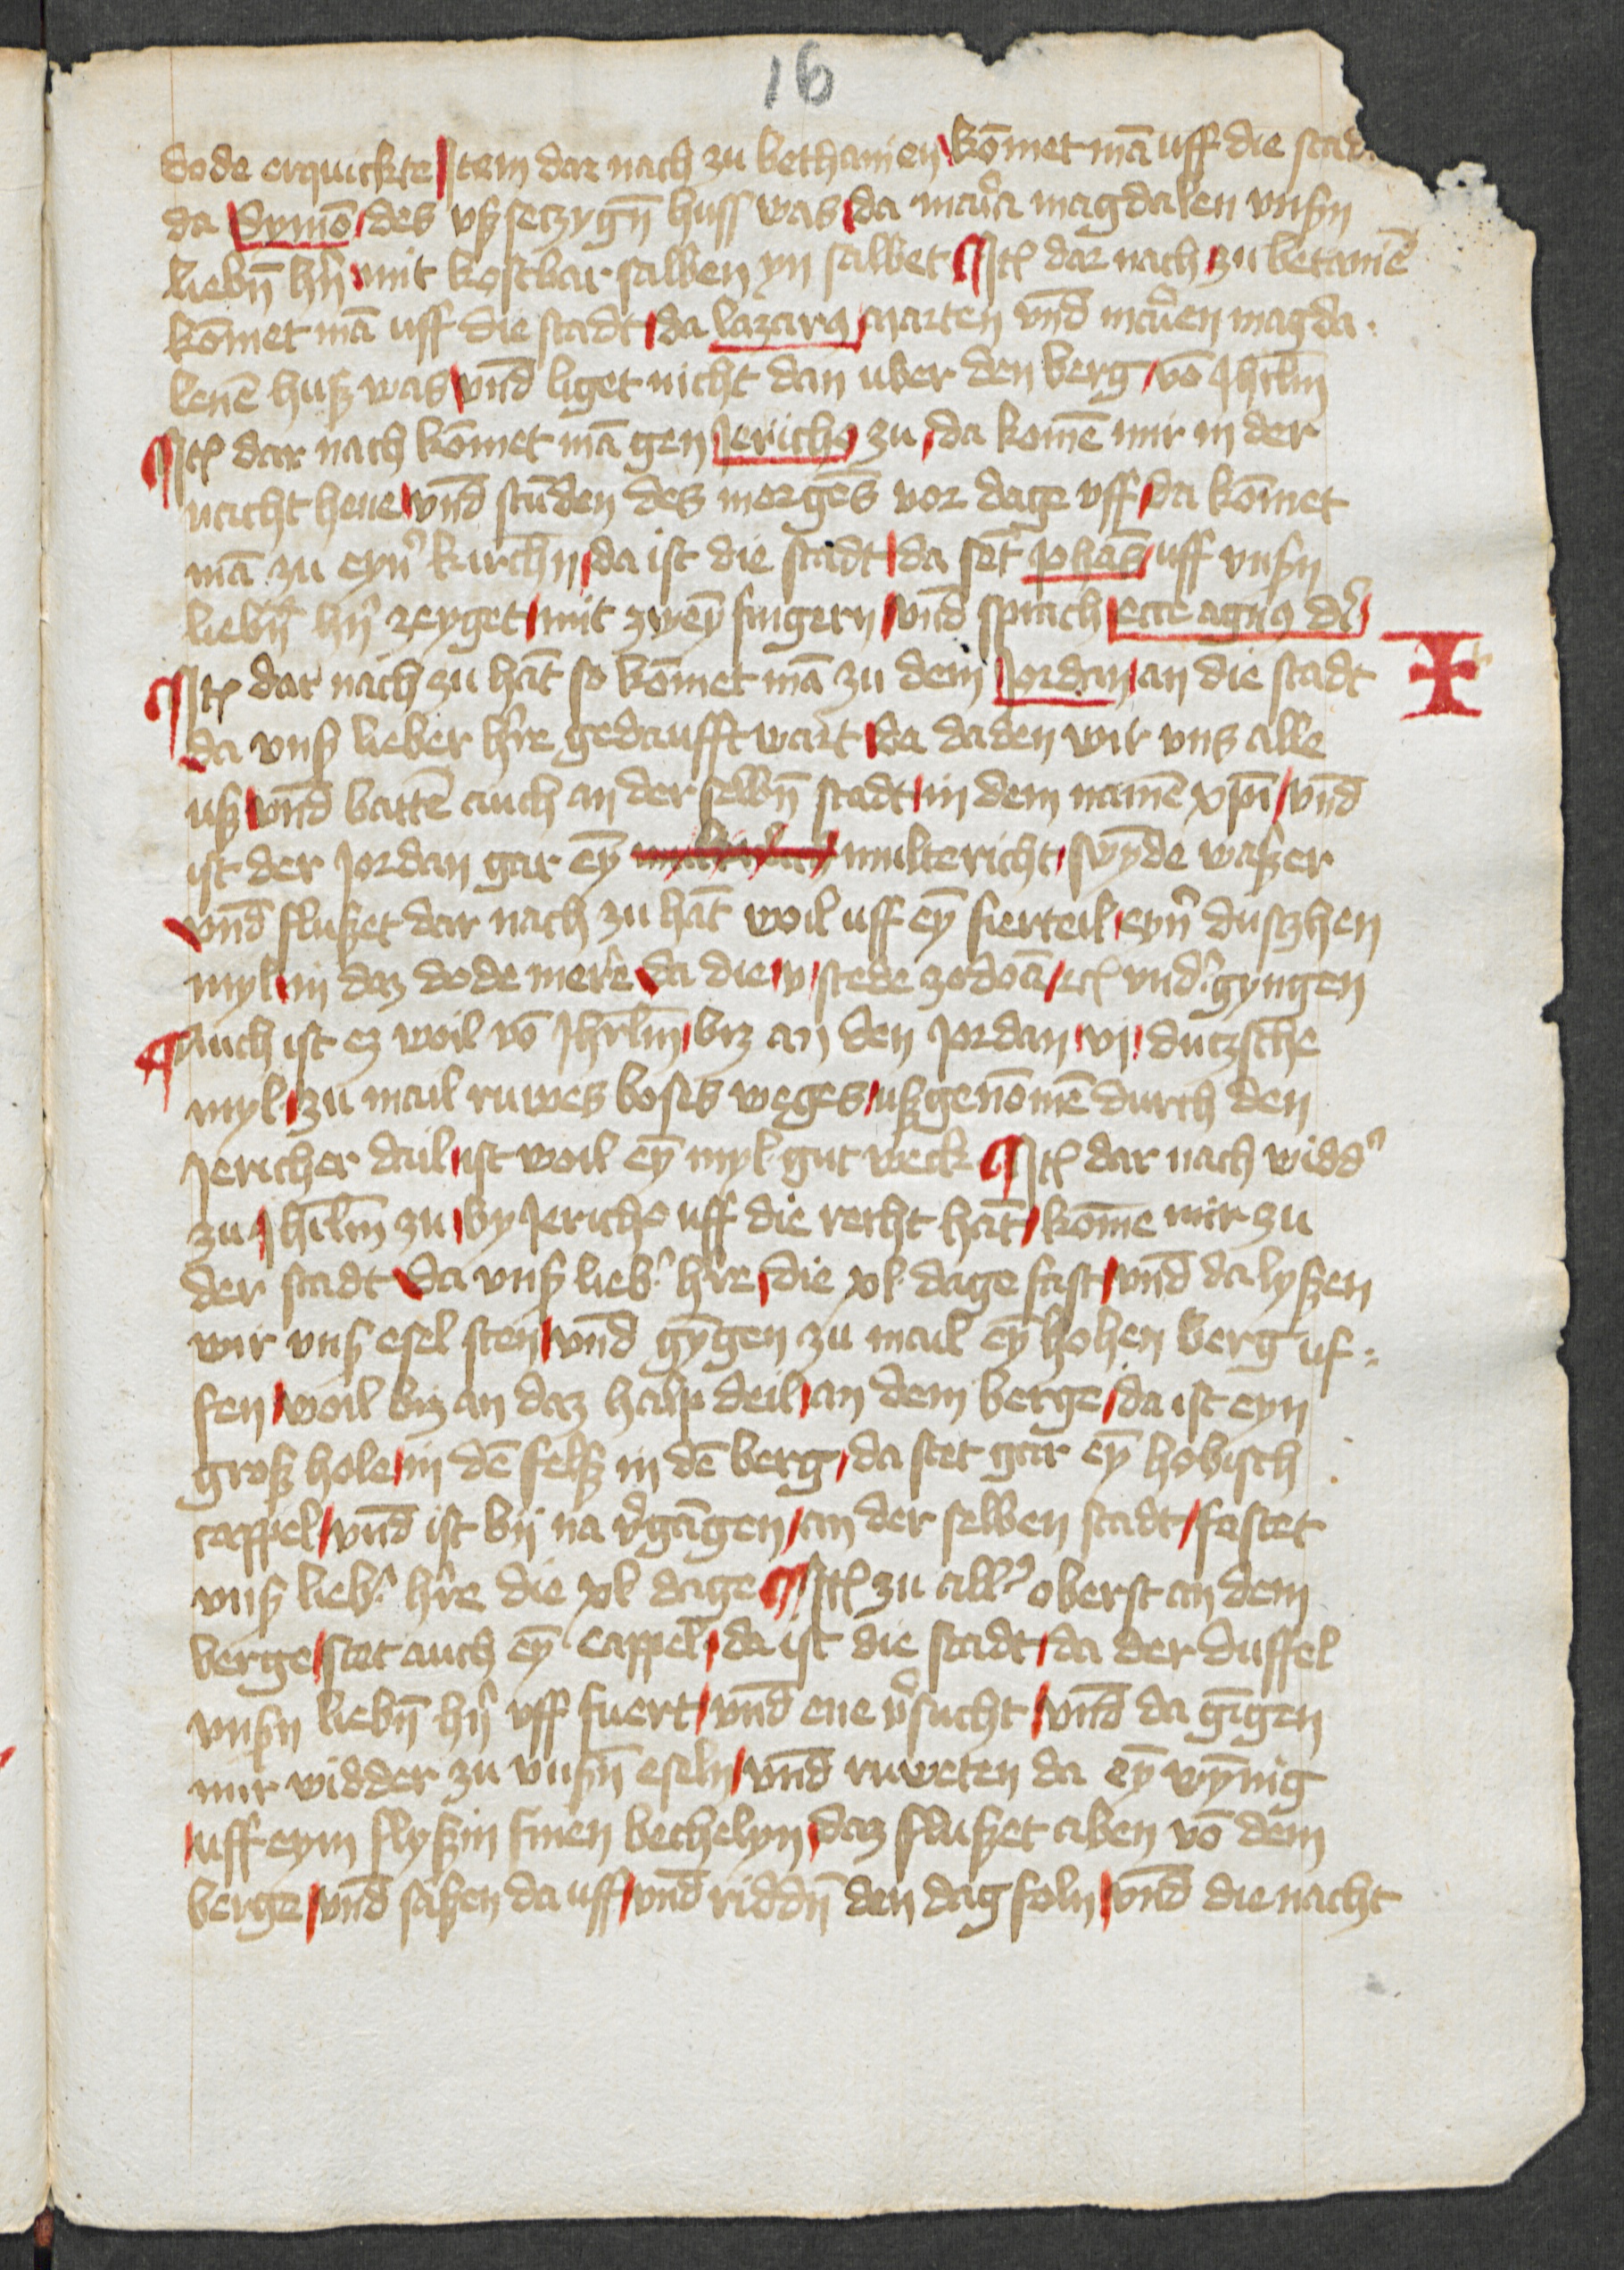 16
dode erquickte Item dar nach zu bethanien kōmet mā uff die stad
da Symō des vßsetzygn̄ huss was da maria magdalen vnßn
liebn̄ hn̄ mit kostbar salben yn salbet Itē dar nach zu betaniē
kōmet mā uff die stadt da lazarꝯ marten vnd marien magda
lenē huß was vnd liget nicht dan uber den berg vō Jhrlm̄
Itē dar nach kōmet mā gen Jericho zu da komē mir in der
nacht hene vnd stūden des morgēs vor dage vff da kōmet
mā zu eynˀ kirchn̄ da ist die stadt da sēt Johās uff vnßn
liebn̄ hn̄ zeyget mit zweȳ fingern vnd sprach ecce agnꝯ di
Itē dar nach zu hāt so kōmet mā zu dem Jordan an die stadt
da vnß lieber hr̄e gedaufft wart da daden wir vns alle
uß vnd battē auch an der selbn̄ stadt in dem namē xp̄i vnd
ist der Jordan gar eȳ multericht swȳde waßer
vnd flußet dar nach zu hāt woil uff eȳ fierteil eynˀ dustzhen
myl in daz dode mere da die v stede zodōa etē vndˀgyngen
Auch ist ez woil vō Jhrlm̄ biz an den Jordan vj dutzsche
myl zu mail ruwes boses weges ußgenōmē durch den
Jericher dail ist woil eȳ myl gut weck Itē dar nach widdˀ
zu Jhrlm̄ zu by Jericho uff die recht hāt kōme mir zu
der stadt da vnß liebˀ hr̄e die xl dage fast vnd da lyßen
wir vnß esel sten vnd gȳgen zu mail eȳ hohen berg uf
fen woil biz an daz halp deil an dem berge da ist eyn
groß hole in dē felß in dē berg da stet gar eȳ hobisch
cappel vnd ist bij na vˀgāgen an der selben stadt fastet
vnß liebˀ hr̄e die xl dage Itē zu allˀ oberst an dem
berge stet auch eȳ cappel da ist die stadt da der duffel
vnßn liebn̄ hn̄ vff fuert vnd ene vˀsucht vnd da gīgen
mir widder zu vnßn̄ eseln vnd ruweten da eȳ wȳnig
uff eym flyßin finen bechelyn daz flußet aben vō dem
berge vnd saßen da uff vnd riddn̄ den dag foln vnd die nacht